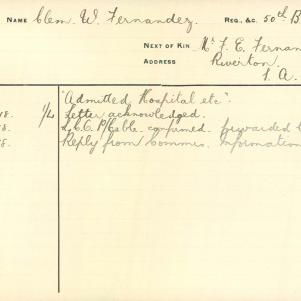 NAME Clem. W. Fernandez. REG., &C. 50th B
NEXT OF KIN Mr. F. E. Fernan
ADDRESS Riverton,
S. A.
"Admitted Hospital etc".
18. Letter acknowledged.
8. Cable confirmed. forwarded
8. Reply from Commis. Information